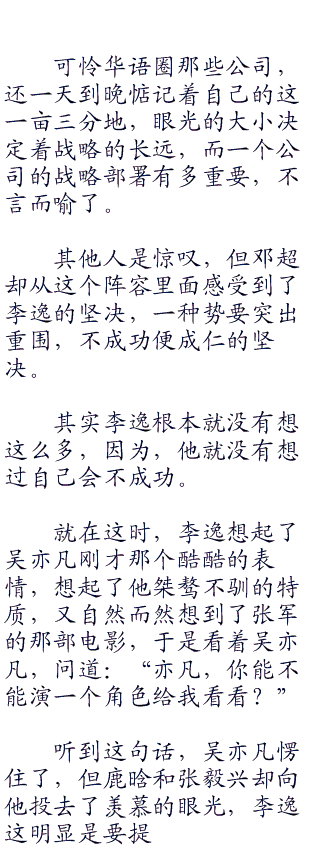 可怜华语圈那些公司，
还一天到晚惦记着自己的这
一亩三分地，眼光的大小决
定着战略的长远，而一个公
司的战略部署有多重要，不
言而喻了。
其他人是惊叹，但邓超
却从这个阵容里面感受到了
李逸的坚决，一种势要突出
重围，不成功便成仁的坚
决。
其实李逸根本就没有想
这么多，因为，他就没有想
过自己会不成功。
就在这时，李逸想起了
吴亦凡刚才那个酷酷的表
情，想起了他桀骜不驯的特
质，又自然而然想到了张军
的那部电影，于是看着吴亦
凡，问道：“亦凡，你能不
能演一个角色给我看看？”
听到这句话，吴亦凡愣
住了，但鹿晗和张毅兴却向
他投去了羡慕的眼光，李逸
这明显是要提